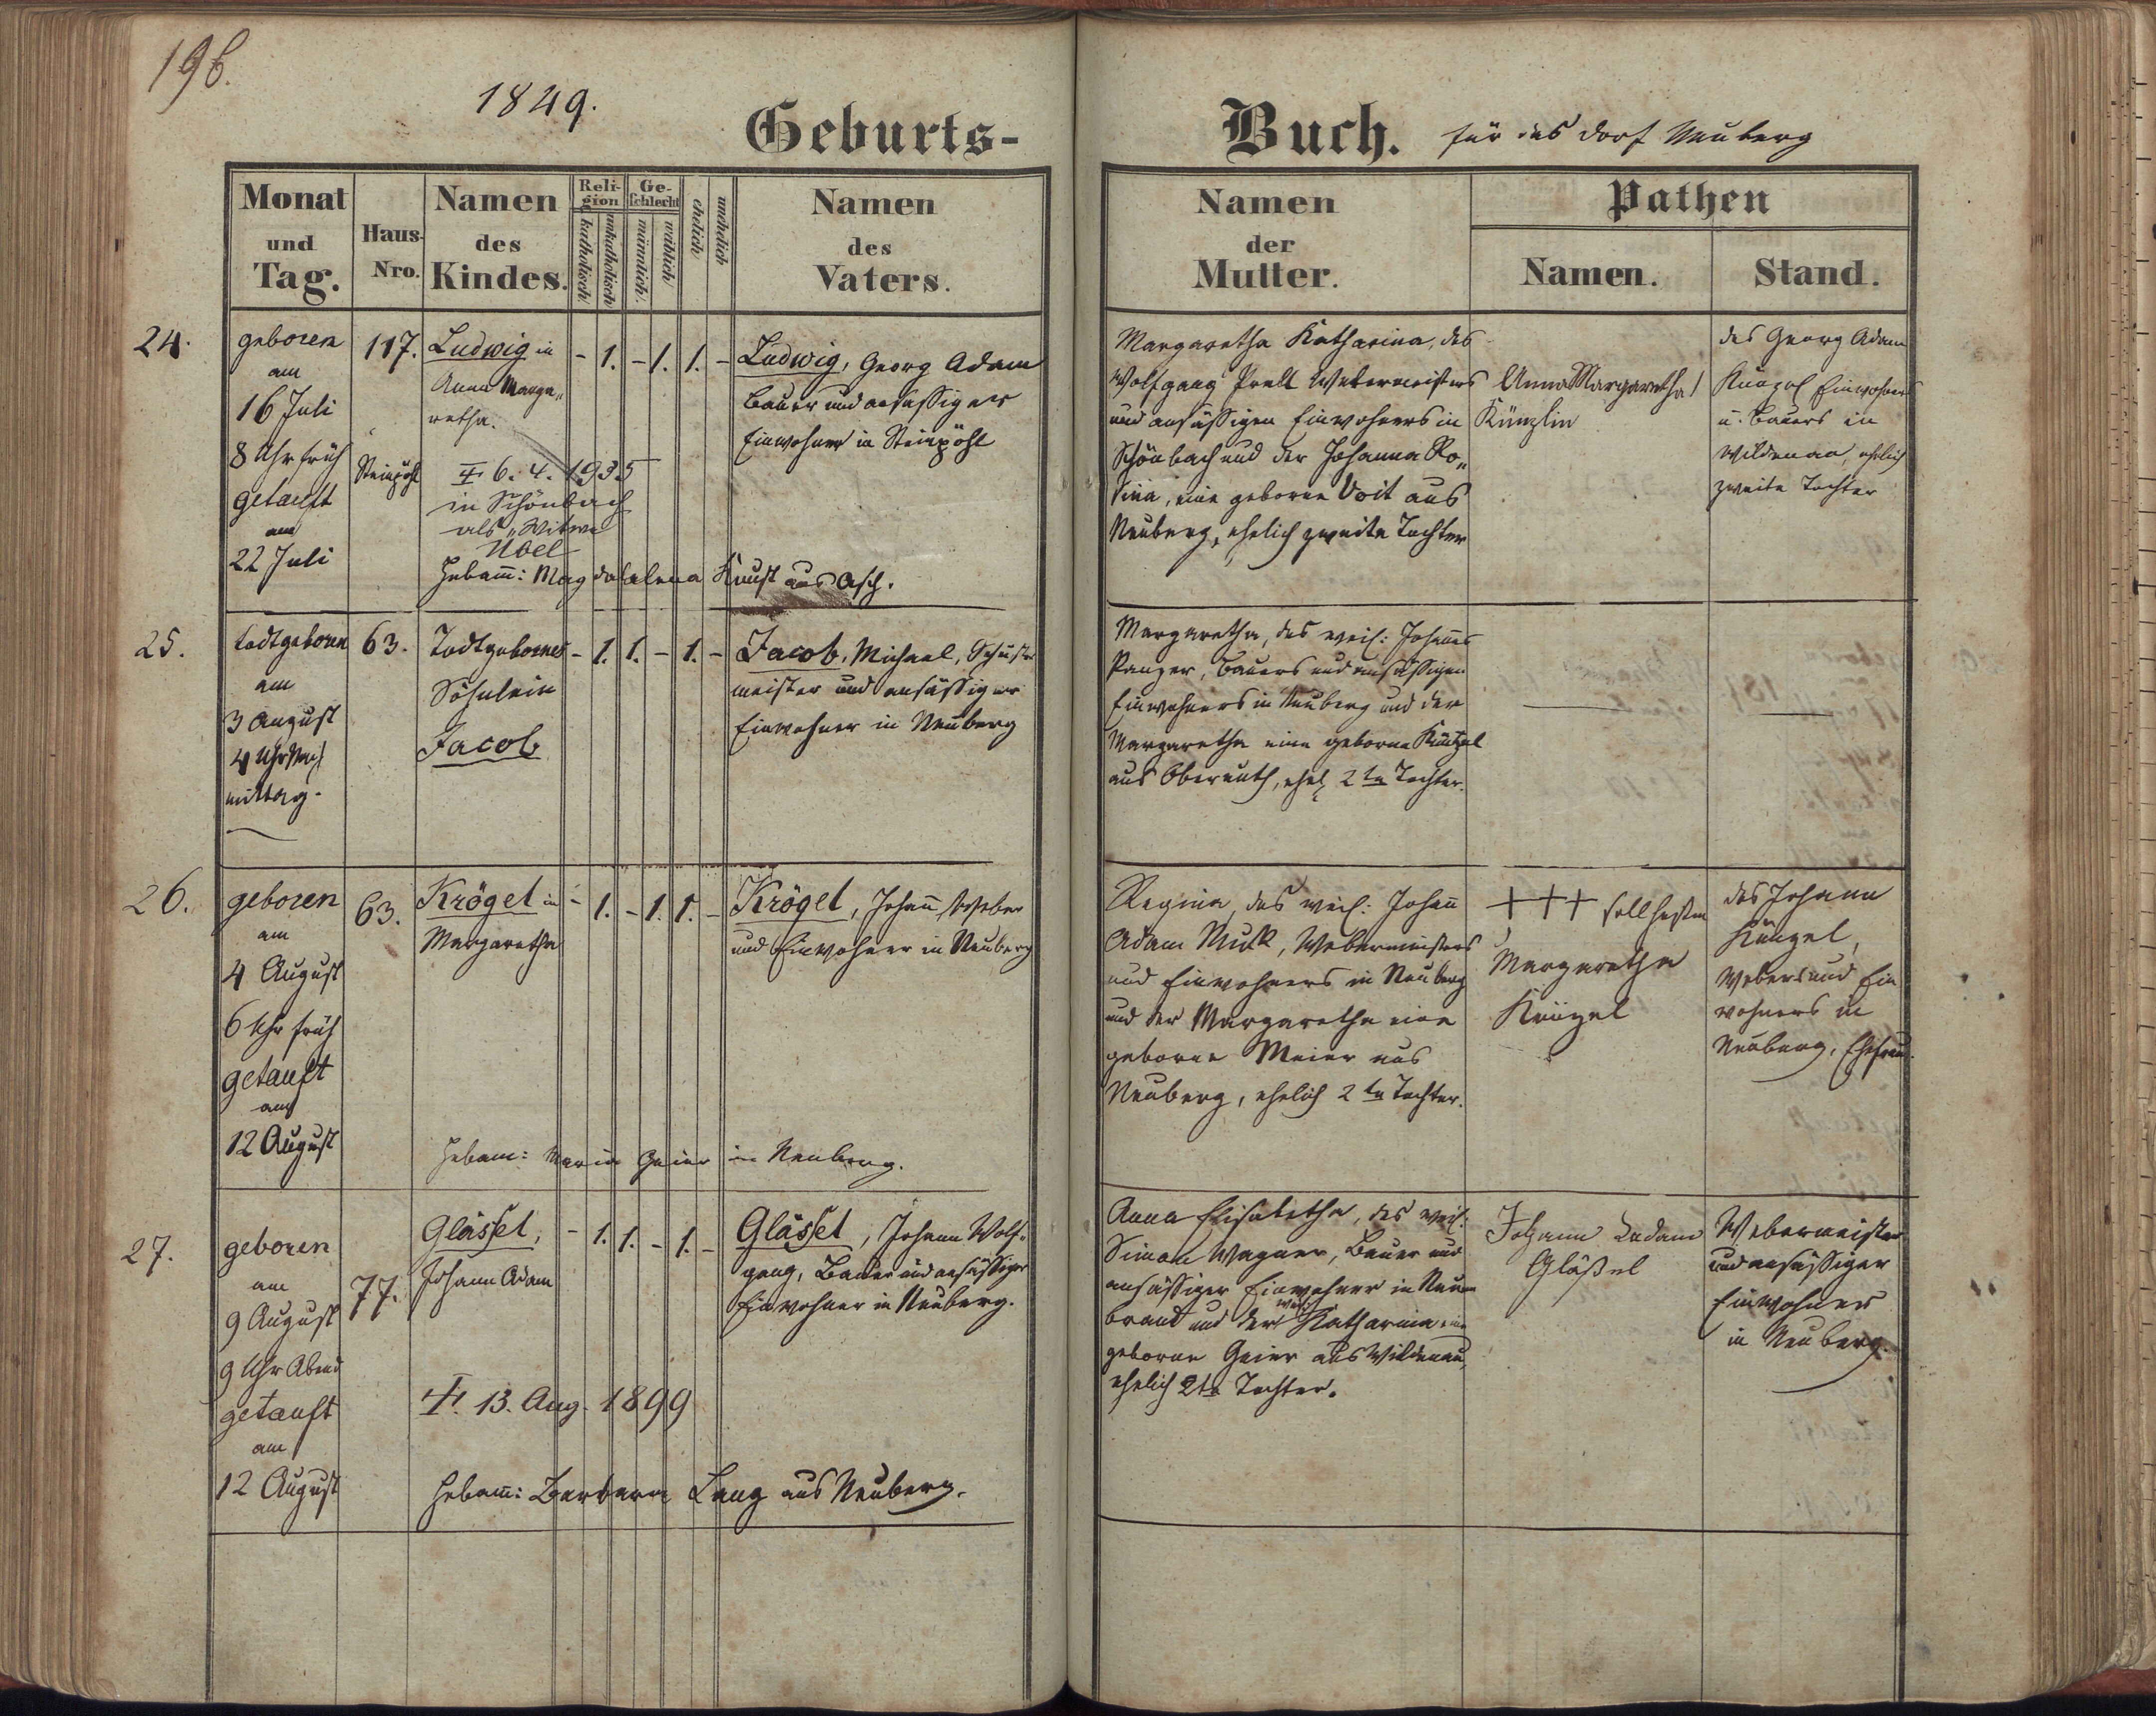 196.
1849.
Geburts-
Buch. für das Dorf Neuberg
Monat
und
Tag.
Haus-
Nro.
Namen
des
Kindes.
Reli-
gion
katholisch
unkatholisch
Ge-
schlecht
männlich
weiblich
ehelich
unehelich
Namen
des
Vaters.
Namen
der
Mutter.
Pathen
Namen.
Stand.
24.
geboren
am
16 Juli
8 Uhr früh
getauft
am
22 Juli
117.
Steinpöhl
Ludwig in
Anna Marga„
retha.
‡ 6. 4. 1935
in Schönbach
als „Witwe
Hebam̄: Magdalalena Kunst aus Asch.
- 1. - 1. 1. -
Ludwig, Georg Adam
Bauer und ansässiger
Einwohner in Steinpöhl
Margaretha Katharina, des
Wolfgang Prell Webermeisters
und ansässigen Einwohners in
Schönbach und der Johanna Ro„
sina, eine geborne Voit aus
Neuberg, ehelich zweite Tochter
Anna Margaretha
Künzlin
des Georg Adam
Künzel Einwohners
u. Bauers in
Wildenau, ehelich
zweite Tochter
25.
todtgeboren
am
3 August
4 Uhr Nach
mittag.
63.
Todtgebornes
Söhnlein
Jacob
- 1. 1. - 1. -
Jacob, Michael, Schuster
meister und ansässiger
Einwohner in Neuberg
Margaretha, des weil: Johannes
Panzer, Bauers und ansässigen
Einwohners in Neuberg und der
Margaretha eine geborne Künzel
aus Oberreuth, ehel 2te Tochter.
26.
geboren
am
4 August
6 Uhr früh
getauft
am
12 August
63.
Krögel in
Margaretha
Hebam: Maria Geier in Neuberg.
- 1. - 1. 1. -
Krögel, Johann, Weber
und Einwohner in Neuberg
Regina, des weil: Johann
Adam Muck, Webermeisters
und Einwohners in Neuberg
und der Margaretha eine
geborne Meier aus
Neuberg, ehelich 2te Tochter.
+++ soll heißen
Margaretha
Künzel
des Johann
Künzel,
Webers und Ein
wohners in
Neuberg, Ehefrau.
27.
geboren
am
9 August
9 Uhr Abend
getauft
am
12 August
77.
Glässel,
Johann Adam
‡. 13. Aug. 1899
Hebam̄: Barbara Lang aus Neuberg.
- 1. 1. - 1. -
Glässel, Johann Wolf„
gang, Bauer und ansässiger
Einwohner in Neuberg.
Anna Elisabetha, des weil:
Simon Wagner, Bauer und
ansässiger Einwohner in Neuen
brand und der weil Katharina eine
geborne Geier aus Wildenau,
ehelich 2te Tochter.
Johann Adam
Gläßel
Webermeister
und ansässiger
Einwohner
in Neuberg.